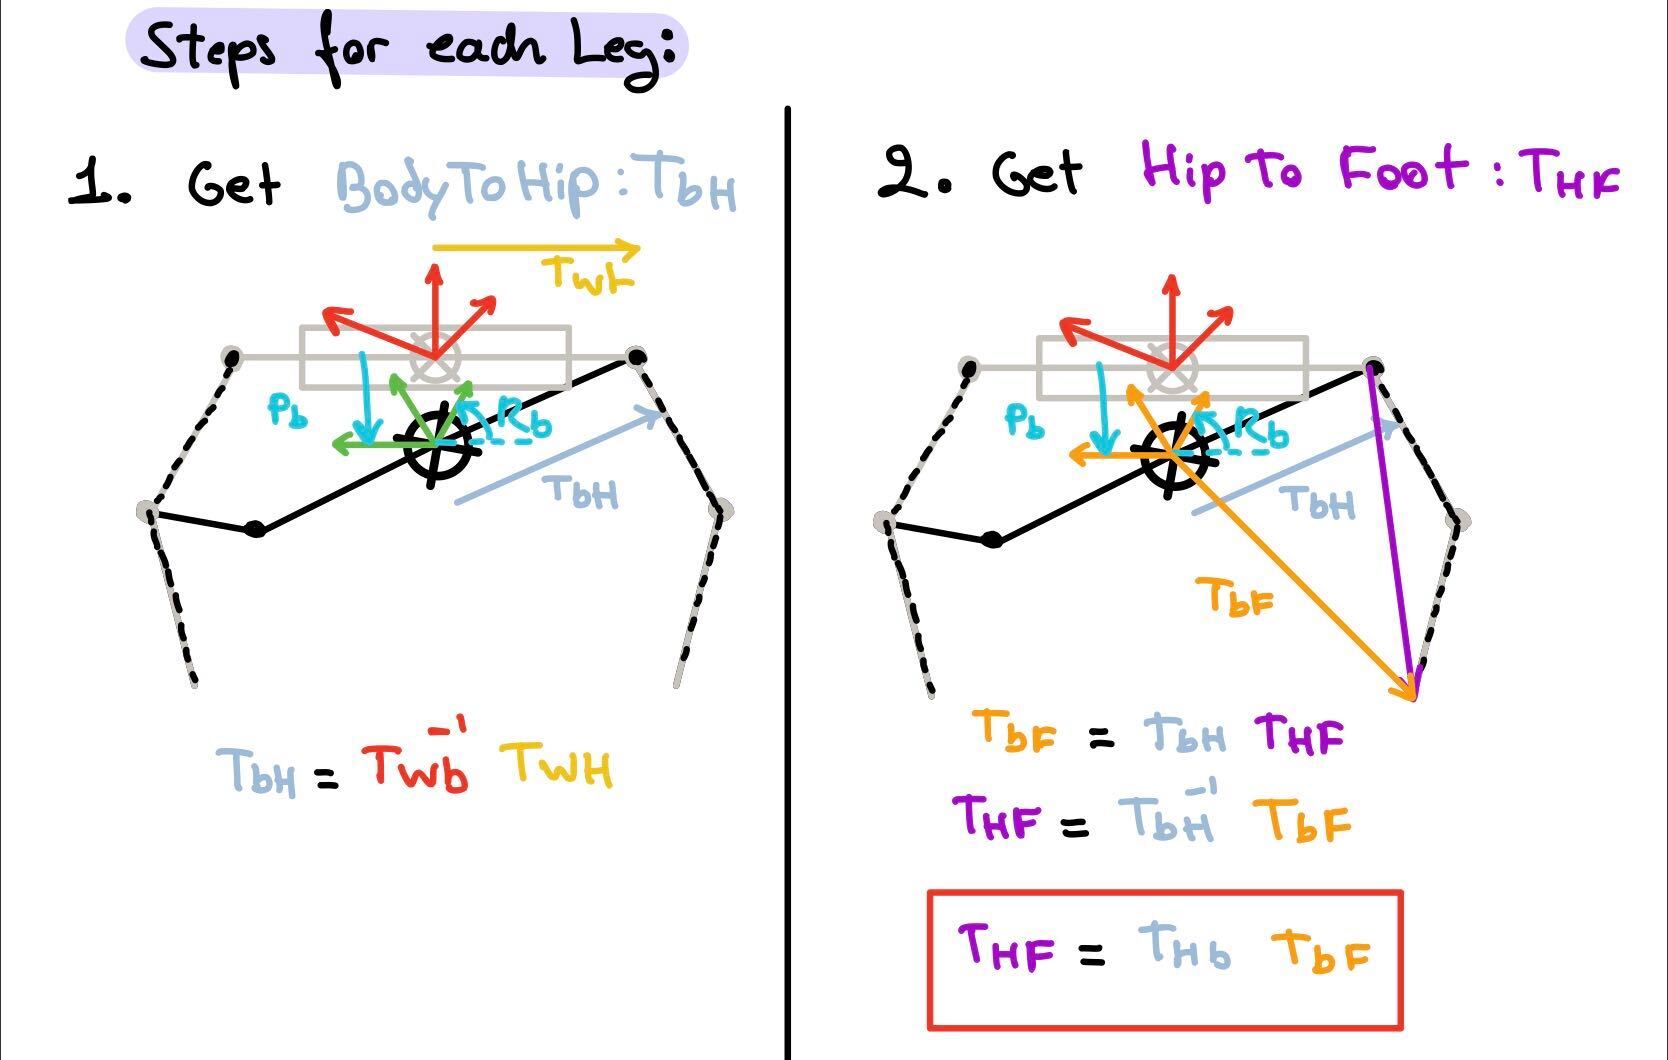 Steps for each Leg:
1. Get BodyToHip : TbH
TwH
Pb
Rb
TbH
TbH = Twb⁻¹ TwH
2. Get Hip To Foot : THF
Pb
Rb
TbH
TbF
TbF = TbH THF
THF = TbH⁻¹ TbF
THF = THb TbF